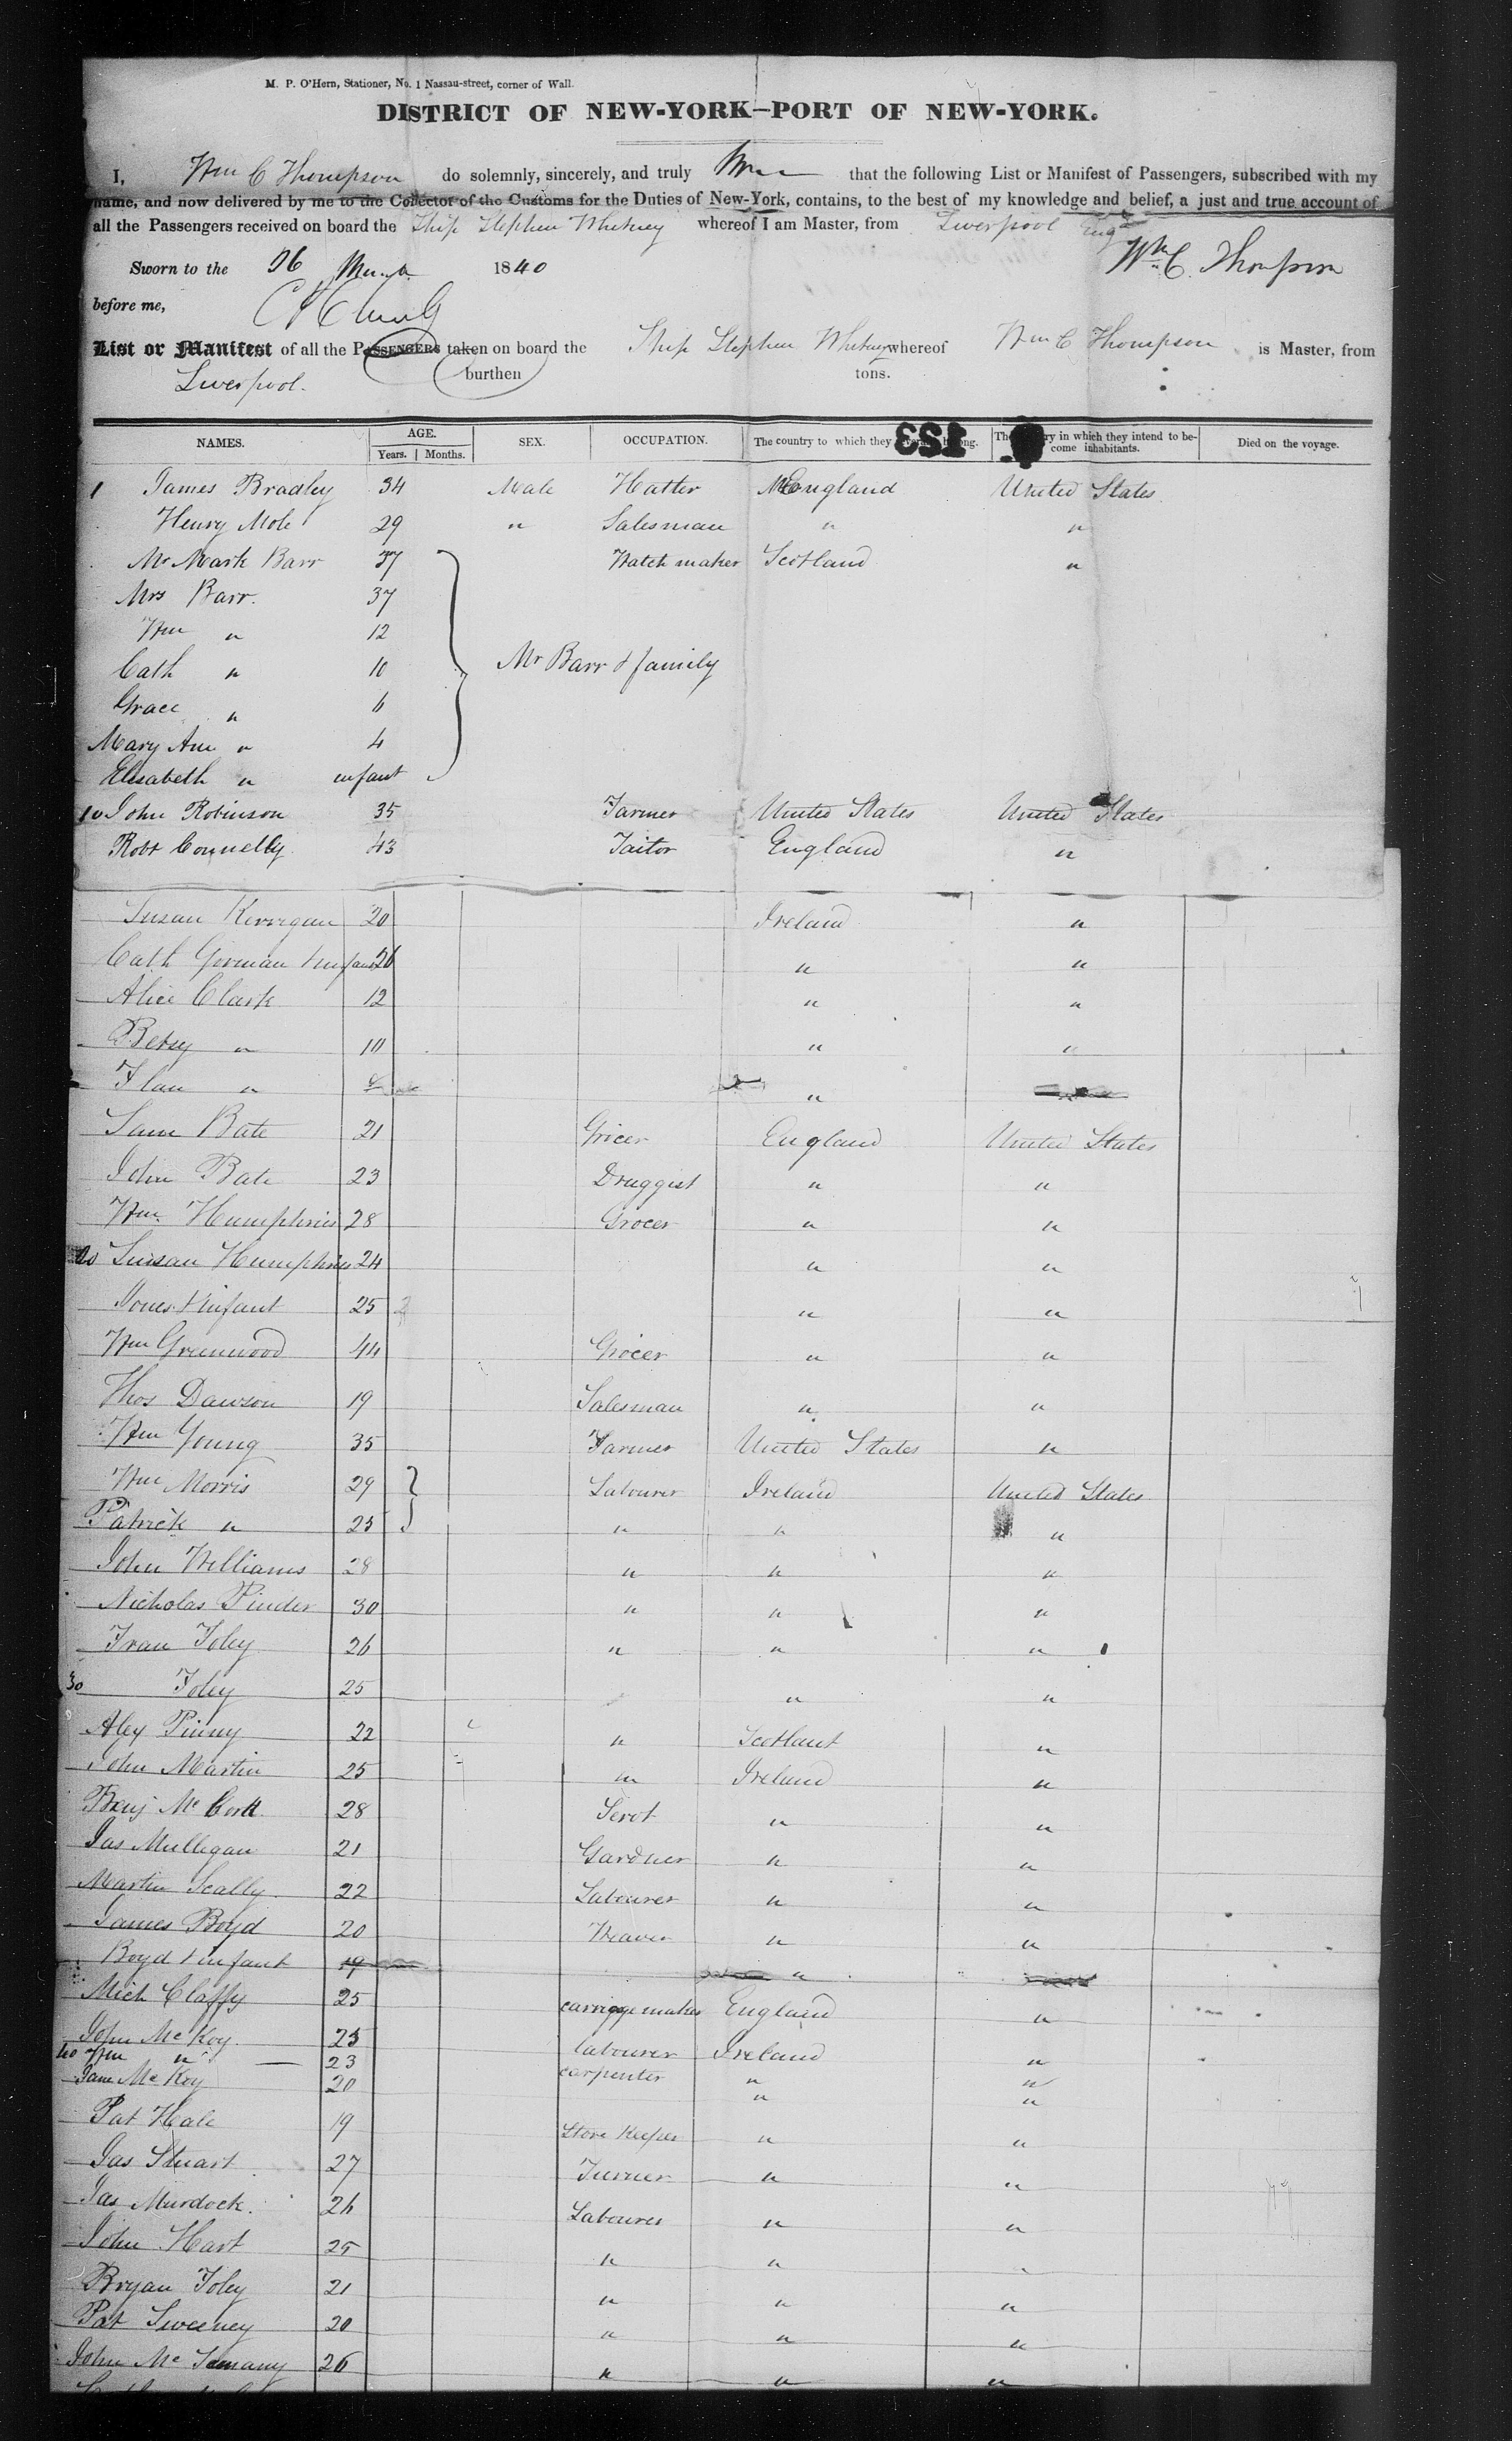 M. P. O'Hern, Stationer, No. 1 Nassau-street, corner of Wall.
DISTRICT OF NEW-YORK—PORT OF NEW-YORK.
I, Wm C Thompson do solemnly, sincerely, and truly that the following List or Manifest of Passengers, subscribed with my
name, and now delivered by me to the Collector of the Customs for the Duties of New-York, contains, to the best of my knowledge and belief, a just and true account of
all the Passengers received on board the Ship Stephen Whitney whereof I am Master, from Liverpool Eng
Sworn to the 1840 Wm C. Thompson
before me,
List or Manifest of all the PASSENGERS taken on board the Ship Stephen Whitney whereof Wm C Thompson is Master, from
Liverpool. burthen tons.
153
NAMES. AGE. SEX. OCCUPATION. The country to which they severally belong. The country in which they intend to be- Died on the voyage.
Years. Months. come inhabitants.
1 James Bradley 34 Male Hatter England United States
Henry Mole 29 " Salesman " "
Mr Mark Barr 37 Watch maker Scotland "
Mrs Barr. 37
Wm " 12
Cath " 10 Mr Barr & family
Grace " 6
Mary Ann " 4
Elisabeth " infant
10 John Robinson 35 Farmer United States United States
Robt Connelly 43 Tailor England "
Susan Kerrigan 20 Ireland "
Cath Gorman & infant 26 " "
Alice Clark 12 " "
Betsy " 10 " "
" "
Sam Bate 21 Grocer England United States
John Bate 23 Druggist " "
Wm Humphries 28 Grocer " "
20 Susan Humphries 24 " "
Jones & infant 25 " "
Wm Greenwood 44 Grocer " "
Thos Dawson 19 Salesman " "
Wm Young 35 Farmer United States "
Wm Morris 29 Labourer Ireland United States
Patrick " 25 " " "
John Williams 28 " " "
Nicholas Pinder 30 " " "
Fran Foley 26 " " "
30 Foley 25 " "
Alex Pinny 22 " Scotland "
John Martin 25 " Ireland "
Benj Mc Cork 28 " "
Jas Mulligan 21 Gardner " "
Martin Scally 22 Labourer " "
James Boyd 20 Weaver " "
Boyd & infant 19 "
Mich Claffy 25 carriage maker England "
John Mc Koy 25 labourer Ireland "
40 Wm " 23 carpenter " "
Jane Mc Koy 20 " "
Pat Hale 19 Store Keeper " "
Jas Stuart 27 Turner " "
Jas Murdock. 26 Labourer " "
John Hart 25 " "
Bryan Foley 21 " " "
Pat Sweeney 20 " " "
John Mc 26 " " "